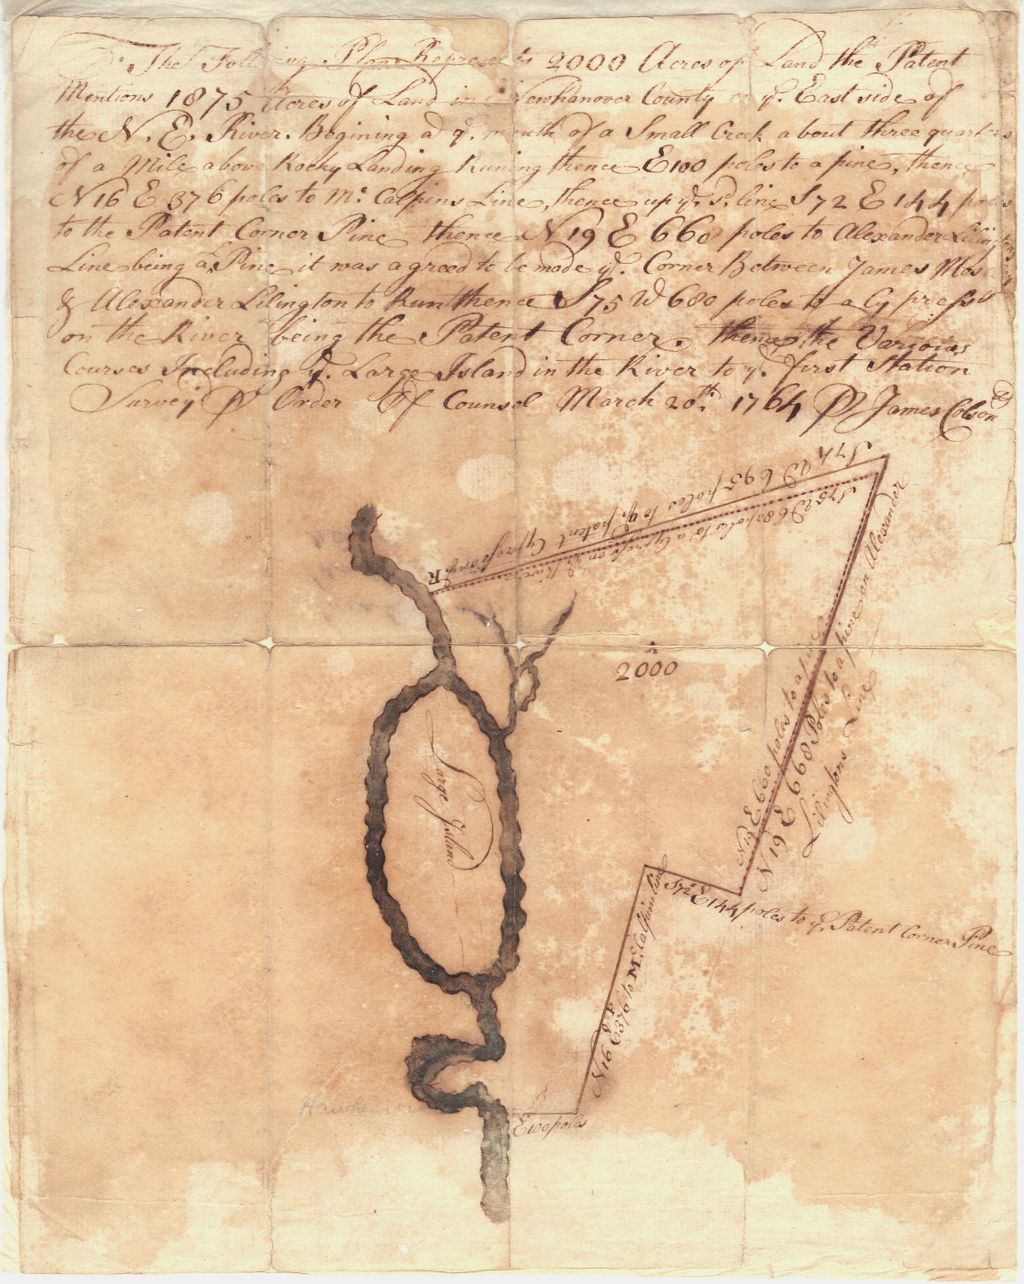 The Following Plan Represents 2000 Acres of Land the Patent
Mentions 1875 Acres of Land in Newhanover County on yᵉ. East side of
the N. E. River. Begining at yᵉ. mouth of a Small Creek about three quarters
of a Mile above Rocky Landing Runing thence E 100 poles to a pine, thence
N 16 E 376 poles to Mᶜ. Calpins Line, thence up yᵉ. sᵈ. line S 72 E 144 poles
to the Patent Corner Pine thence N 19 E 660 poles to Alexander Lilingtons
Line being a Pine it was agreed to be made yᵉ. Corner Between James Mosa
& Alexander Lilington to Run thence S 75 W 680 poles to a Cypress
on the River being the Patent Corner. thence the Varyoias
Courses Including yᵉ. Large Island in the River to yᵉ. first Station
Survey'd Pʳ Order Of Counsel March 20ᵗʰ. 1764 Pʳ James Colson
S 74 W 695 poles to yᵉ. patent Cypress on yᵉ R
S 75 W 680 poles to a Cypress on the River
2000
Large Island
N 19 E 660 poles to a pine
N 19 E 660 Poles to a pine on Alexander
Lilingtons Line
S 72 E 144 poles to yᵉ. Patent Corner Pine
N 16 E 376 to Mᶜ. Calpins line
E 100 poles